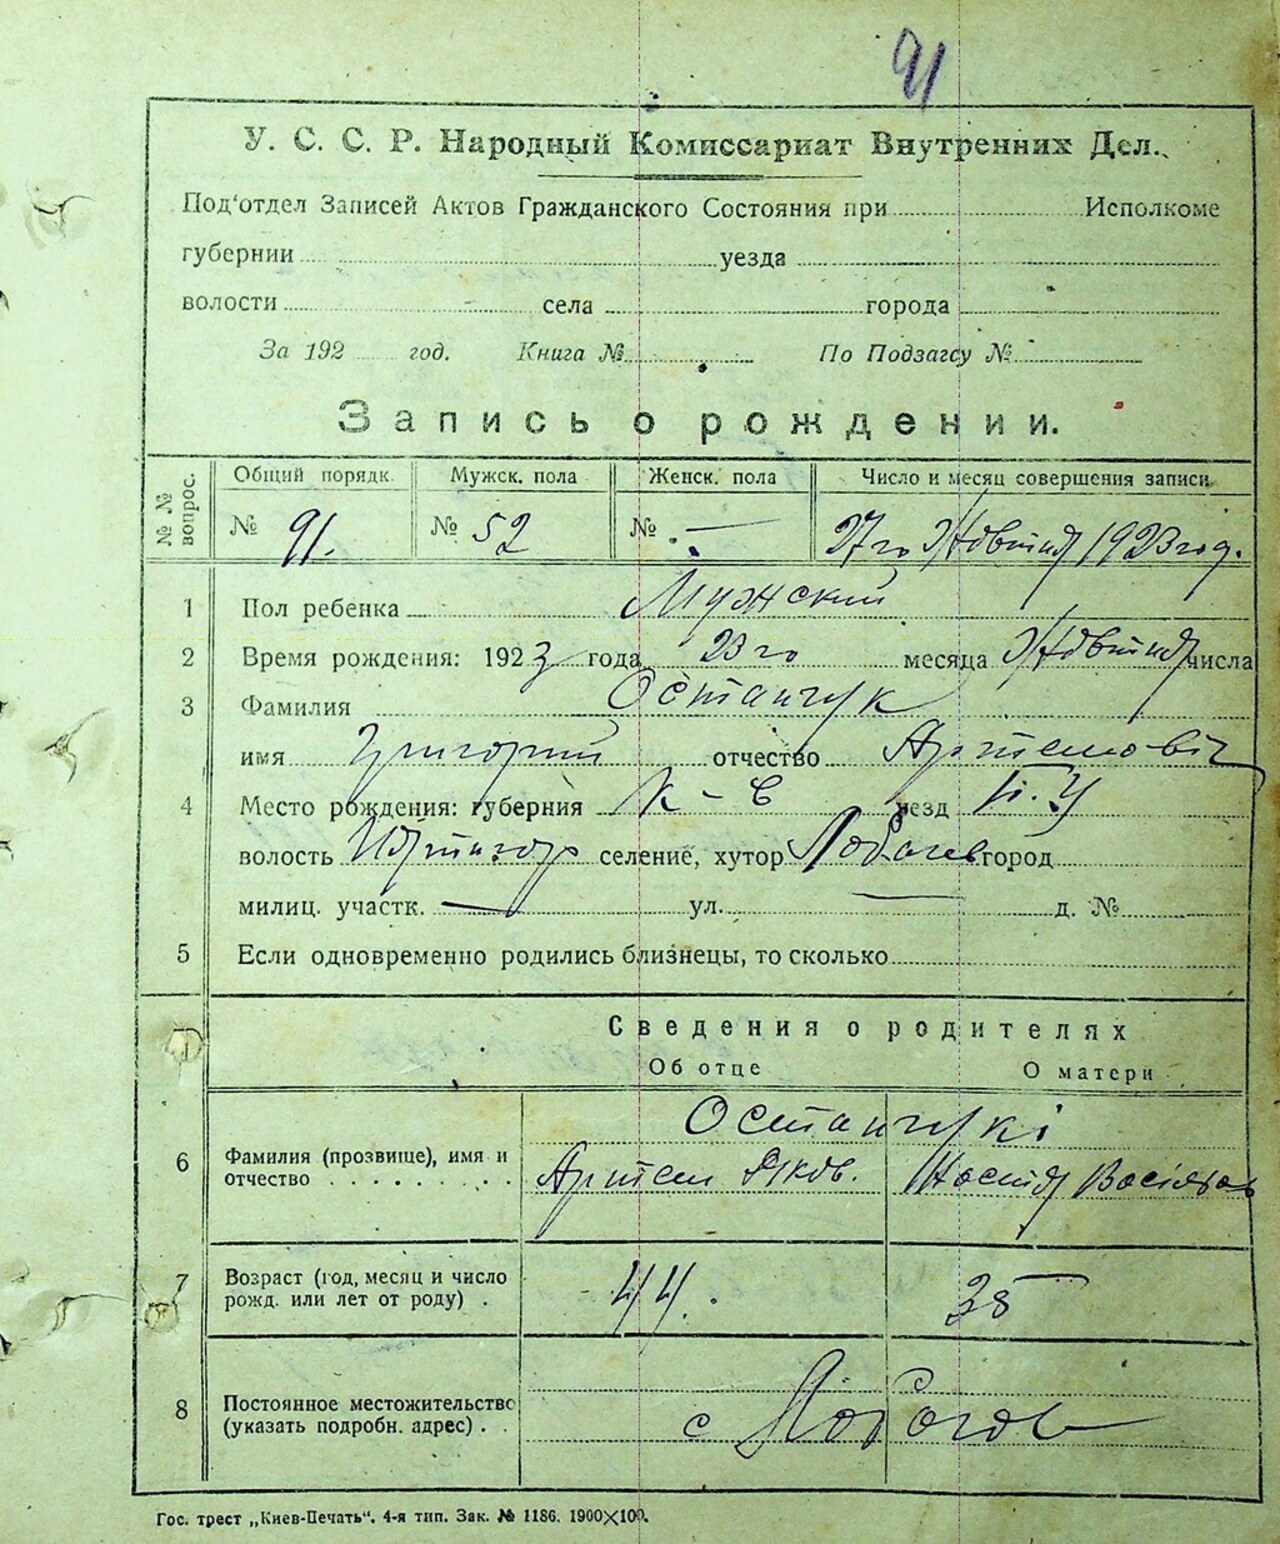 91
У. С. С. Р. Народный Комиссариат Внутренних Дел.
Под'отдел Записей Актов Гражданского Состояния при Исполкоме
губернии уезда
волости села города
За 192 год. Книга № По Подзагсу №
Запись о рождении.
№ № вопрос. Общий порядк. Мужск. пола Женск. пола Число и месяц совершения записи
№ 91. № 52 № — 27го Жовтня 1923 год.
1 Пол ребенка Мужский
2 Время рождения: 1923 года 23го месяца Жовтня числа
3 Фамилия Остапчук
имя Григорий отчество Артемовіч
4 Место рождения: губерния К-в уезд Б.Ц
волость селение, хутор город
милиц. участк. — ул. — д. №
5 Если одновременно родились близнецы, то сколько
Сведения о родителях
Об отце О матери
Остапчукі
6 Фамилия (прозвище), имя и отчество Артем Яков. Настя
7 Возраст (год, месяц и число рожд. или лет от роду) . 44. 38
8 Постоянное местожительство (указать подробн. адрес) . . с
Гос. трест „Киев-Печать". 4-я тип. Зак. № 1186. 1900×100.